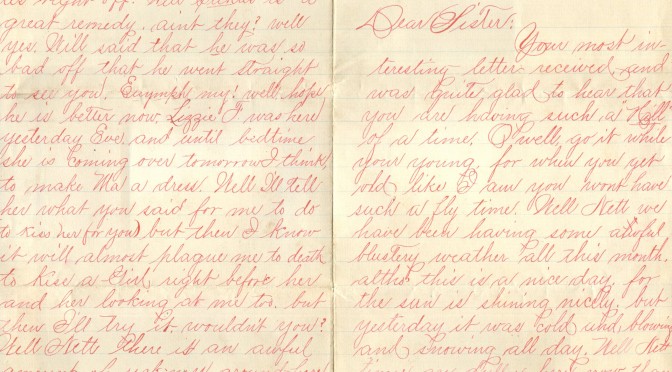 great remedy. aint they? well
yes. Will said that he was so
bad off that he went straight
to see you. my! well hope
he is better now. Lizzie F was here
yesterday Eve. and until bedtime
she is Coming over tomorrow I think
to make Ma a dress. Well I'll tell
her what you said for me to do
to kiss her (for you) but then I know
it will almost plague me to death
to Kiss a Girl, right before her
and her looking at me to. but
then I'll try it. wouldn't you?
Well Nett there is an awful
amount of sickness around here
Dear Sister:
Your most in-
teresting letter received and
was quite glad to hear that
you are having such a "Hell
of a time. O well, go it while
your young, for when you get
old like I am you wont have
such a fly time. Well Nett we
have been having some awful
blustery weather all this month.
altho this is a nice day. for
the sun is shining nicely, but
yesterday it was cold and blowing
and snowing all day. Well Nett